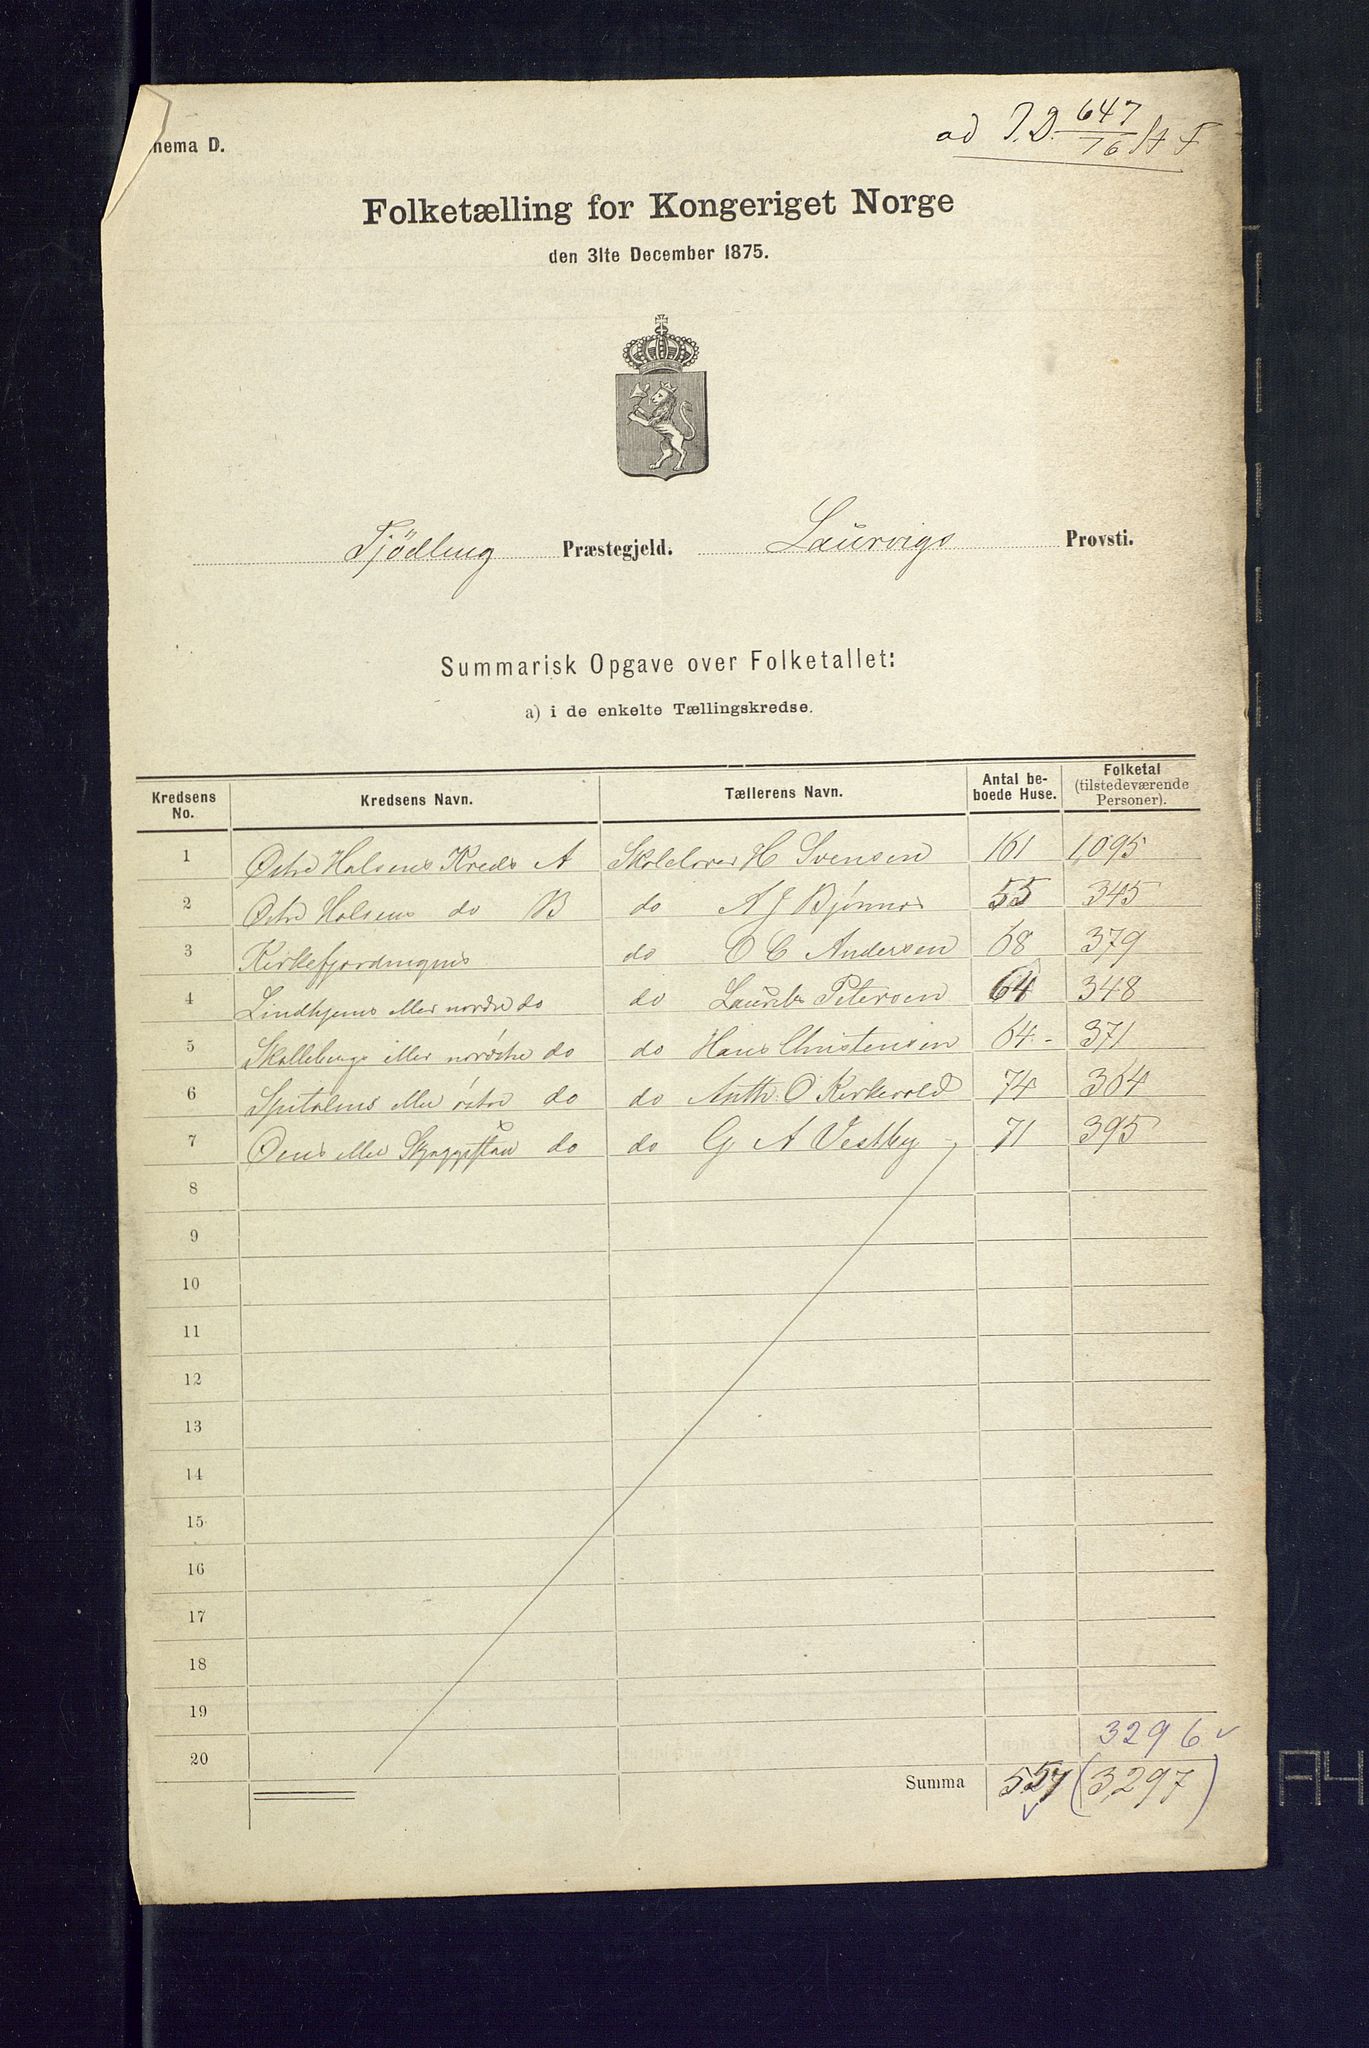 ad J. D. 647/76 St F
hema D.
Folketælling for Kongeriget Norge
den 31te December 1875.
Tjödling Præstegjeld. Laurvigs Provsti.
Summarisk Opgave over Folketallet:
a) i de enkelte Tællingskredse.
Kredsens No. Kredsens Navn. Tællerens Navn. Antal beboede Huse. Folketal (tilstedeværende Personer).
1 Østre Halsens Kreds A Skolelærer H Svensen 161 1,095
2 Østre Halsens do B do A J Bjønnes 55 345
3 Kirkefjerdingens do O C Andersen 68 379
4 Lindhjems eller nordre do do Laurits Petersen 64 348
5 Skallebergs eller nordøstre do do Hans Christensen 64 - 371
6 Spitalens eller østre do do Anth. O Kirkevold 74 364
7 Oens eller do do G A Vestby 71 395
8
9
10
11
12
13
14
15
16
17
18
19
20
3296 ✓
Summa 557 (3,297)
✓
A4